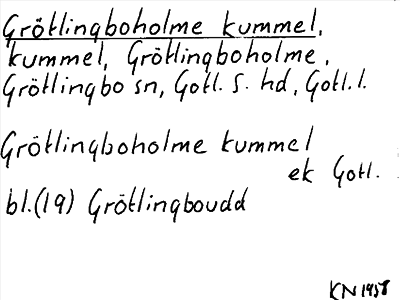 Grötlingboholme kummel,
kummel, Grötlingboholme,
Grötlingbo sn, Gotl. S. hd, Gotl. l.
Grötlingboholme kummel
ek Gotl.
bl. (19) Grötlingboudd
KN 1958